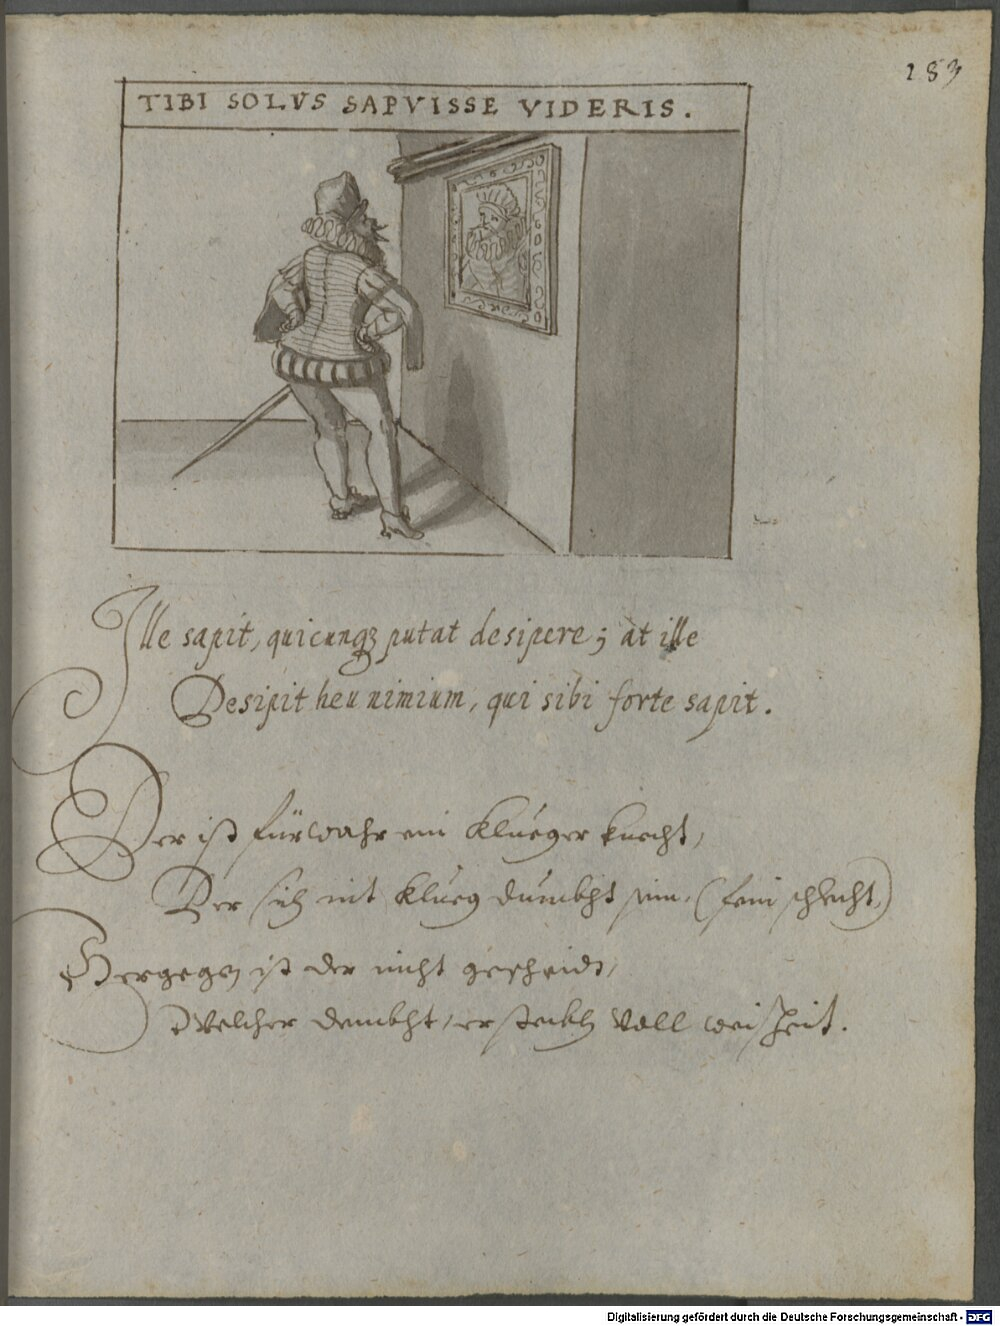 283
TIBI SOLVS SAPVISSE VIDERIS.
Ille sapit, quicunqz putat desipere; at ille
Desipit heu nimium, qui sibi forte sapit.
Der ist fürwahr ein klueger knecht,
Der sich nit klueg dunkht sein. (fein schlecht,)
Hergegen ist der nicht gescheidt,
Welcher denkht, er steckh voll weisheit.
Digitalisierung gefördert durch die Deutsche Forschungsgemeinschaft - DFG